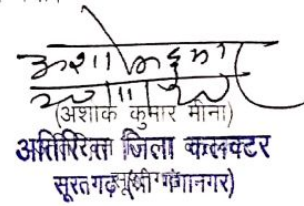 (अशोक कुमार मीना)
अतिरिक्त जिला कलक्टर
सूरतगढ़ (श्री गंगानगर)